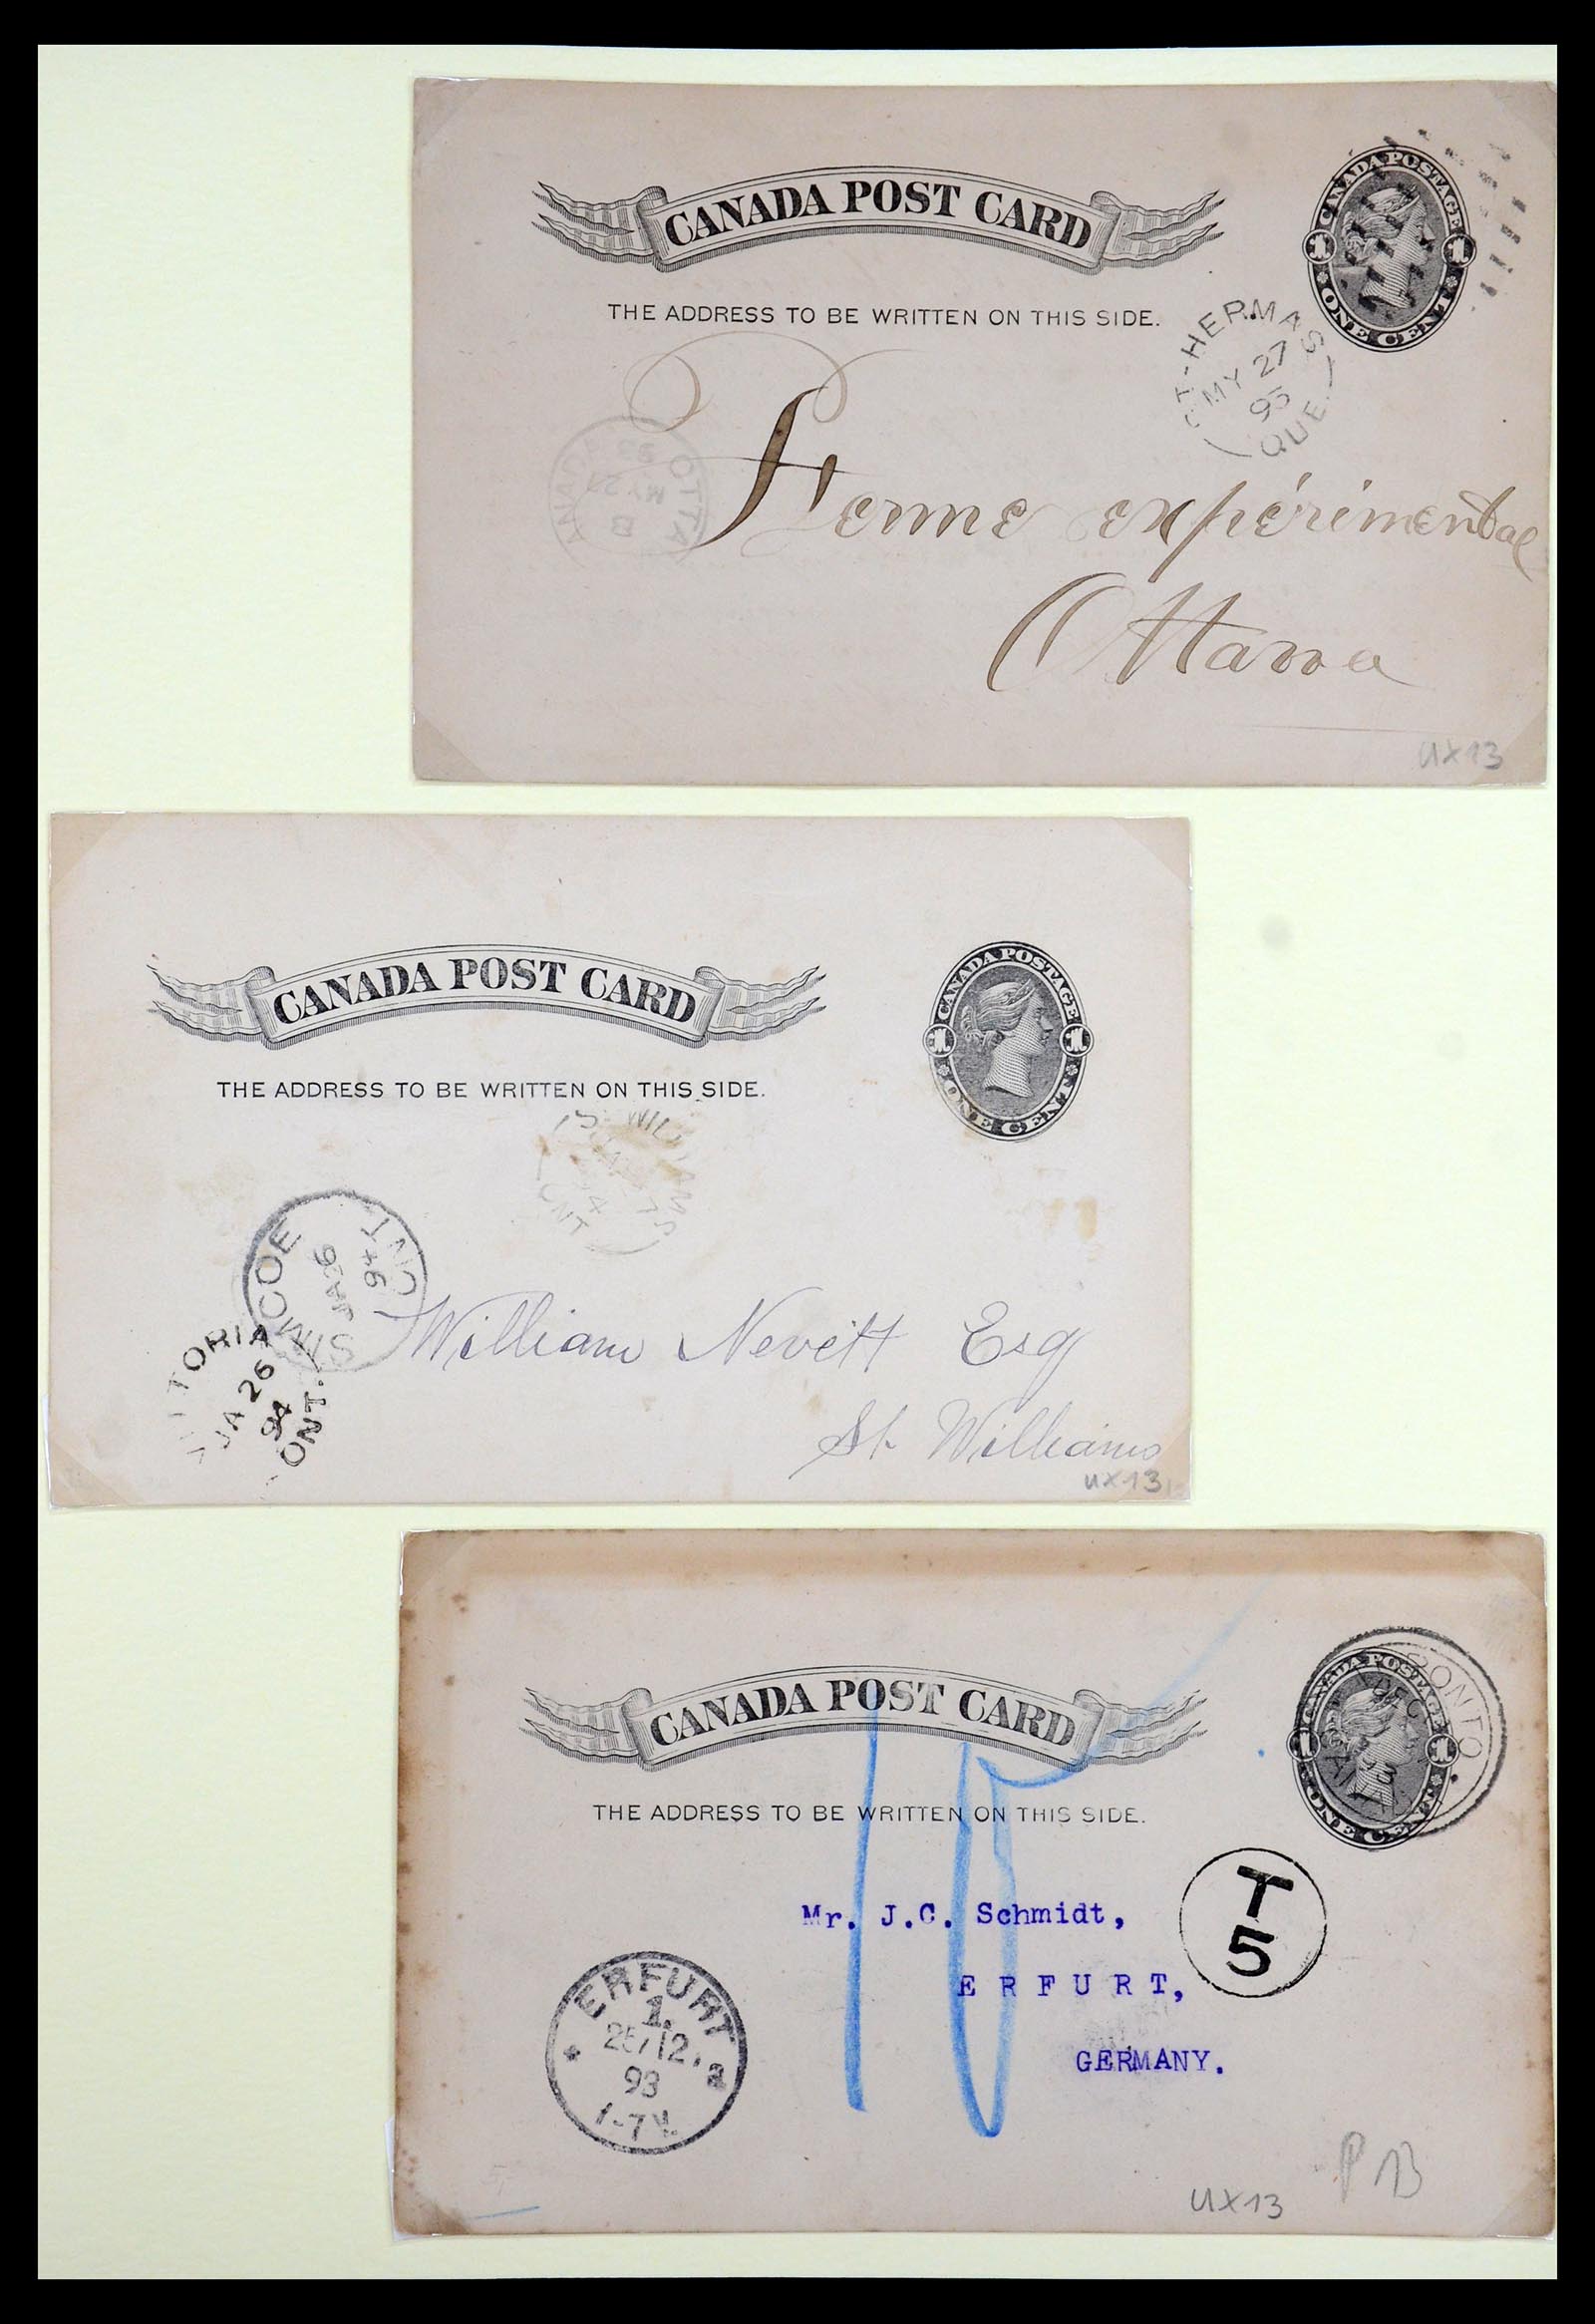 CANADA POST CARD
CANADA POSTAGE
1 1
ONE CENT
THE ADDRESS TO BE WRITTEN ON THIS SIDE.
ST-HERMAS
MY 27
95
QUE.
OTTAWA
B
MY 2
CANADA
Ferme expérimentale
Ottawa
UX13
CANADA POST CARD
CANADA POSTAGE
1 1
ONE CENT
THE ADDRESS TO BE WRITTEN ON THIS SIDE.
ST WILLIAMS
ONT
SIMCOE
JA 26
94
ONT
VITTORIA
JA 26
94
ONT.
William Nevitt Esq
St. Williams
UX13
CANADA POST CARD
CANADA POSTAGE
1 1
ONE CENT
TORONTO
DEC
THE ADDRESS TO BE WRITTEN ON THIS SIDE.
10
T
5
Mr. J.C. Schmidt,
ERFURT,
GERMANY.
ERFURT
1.
25/12.
93
1-7V.
* a
P13
UX13